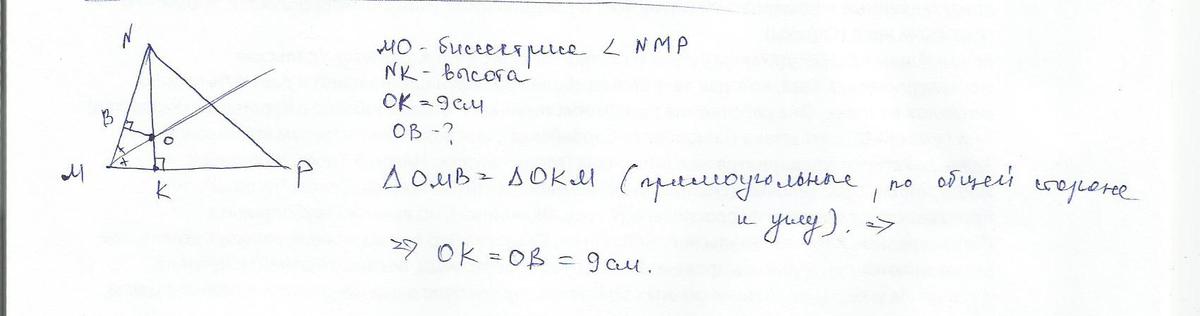 N
B
O
M
K
P
MO - биссектриса ∠ NMP
NK - высота
OK = 9 см
OB - ?
Δ OMB = Δ OKM (прямоугольные, по общей стороне
и углу). ⇒
⇒ OK = OB = 9 см.